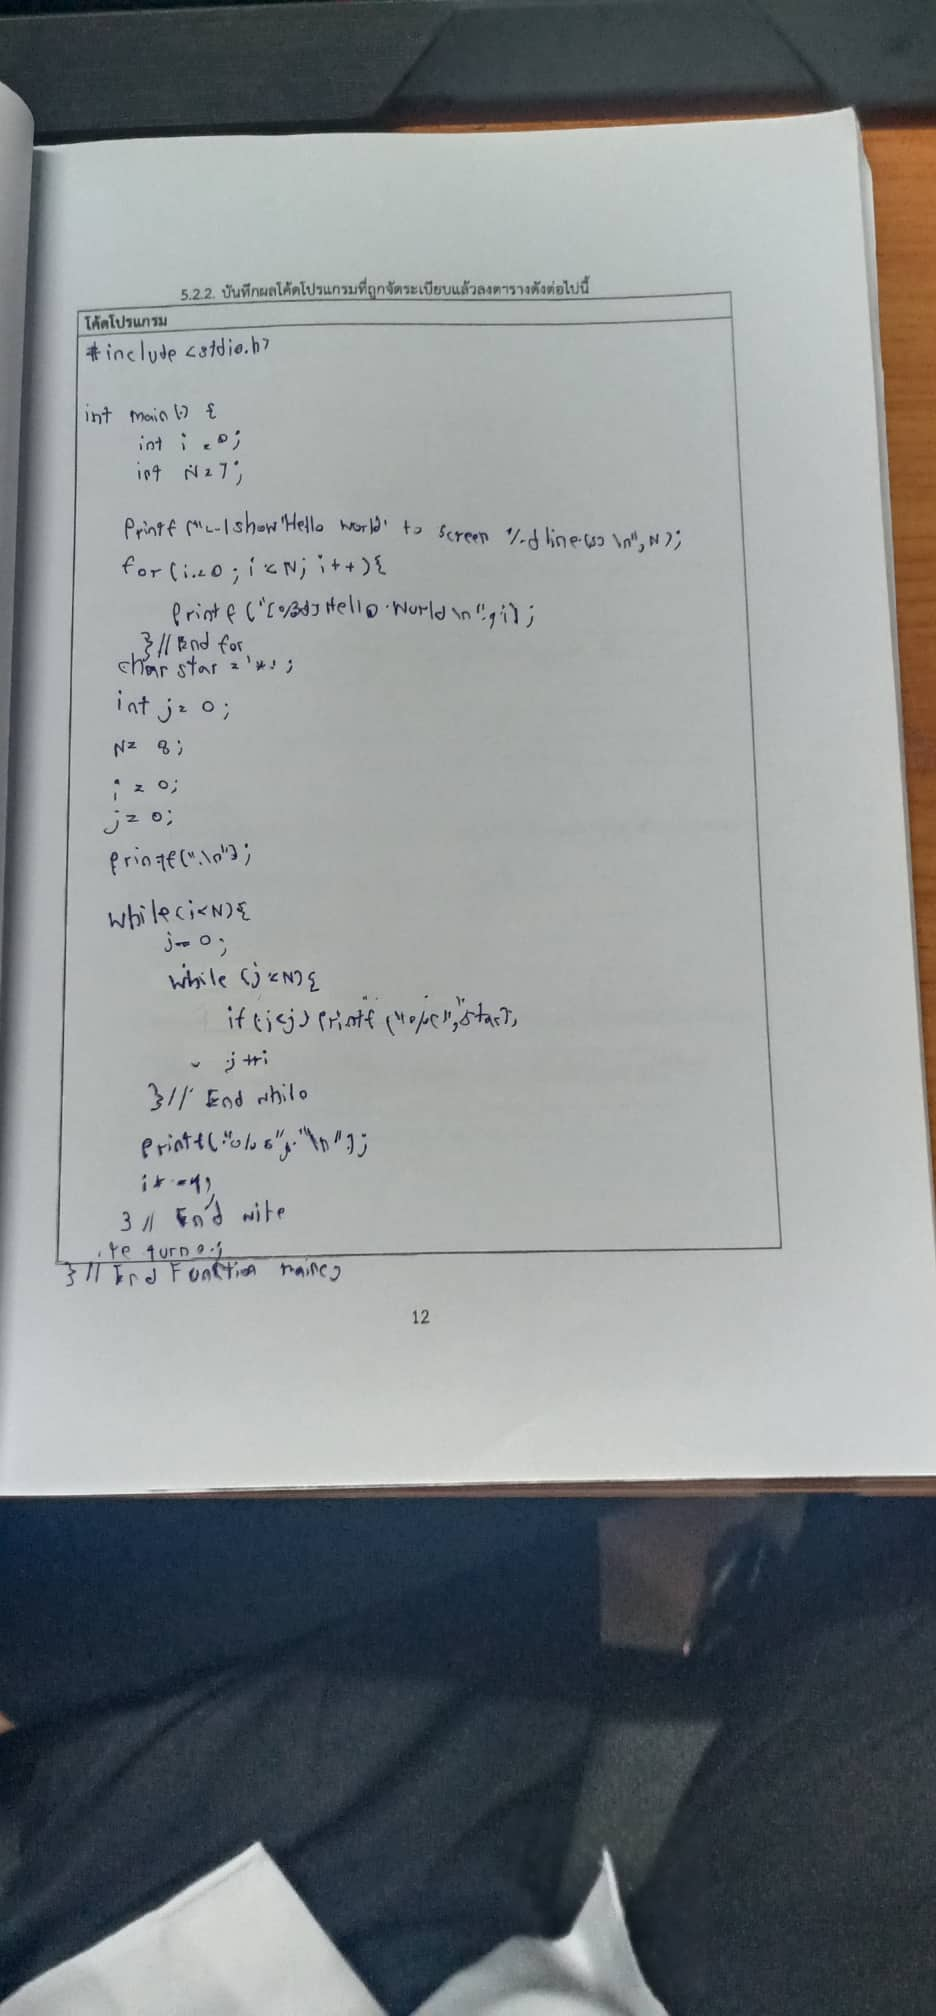 5.2.2. บันทึกผลโค้ดโปรแกรมที่ถูกจัดระเบียบแล้วลงตารางดังต่อไปนี้
โค้ดโปรแกรม
#include <stdio.h>
int main() {
int i = 0;
int N = 7;
printf ("---| show 'Hello World' to screen %d line(s) \n", N);
for (i = 0; i < N; i++) {
printf ("[%3d] Hello World \n", i);
} // End for
char star = '*';
int j = 0;
N = 8;
i = 0;
j = 0;
printf("\n");
while (i < N) {
j = 0;
while (j < N) {
if (i < j) printf ("%c", star);
j++;
} // End while
printf("%s", "\n");
} // End wite
return 0;
} // End Function main()
12